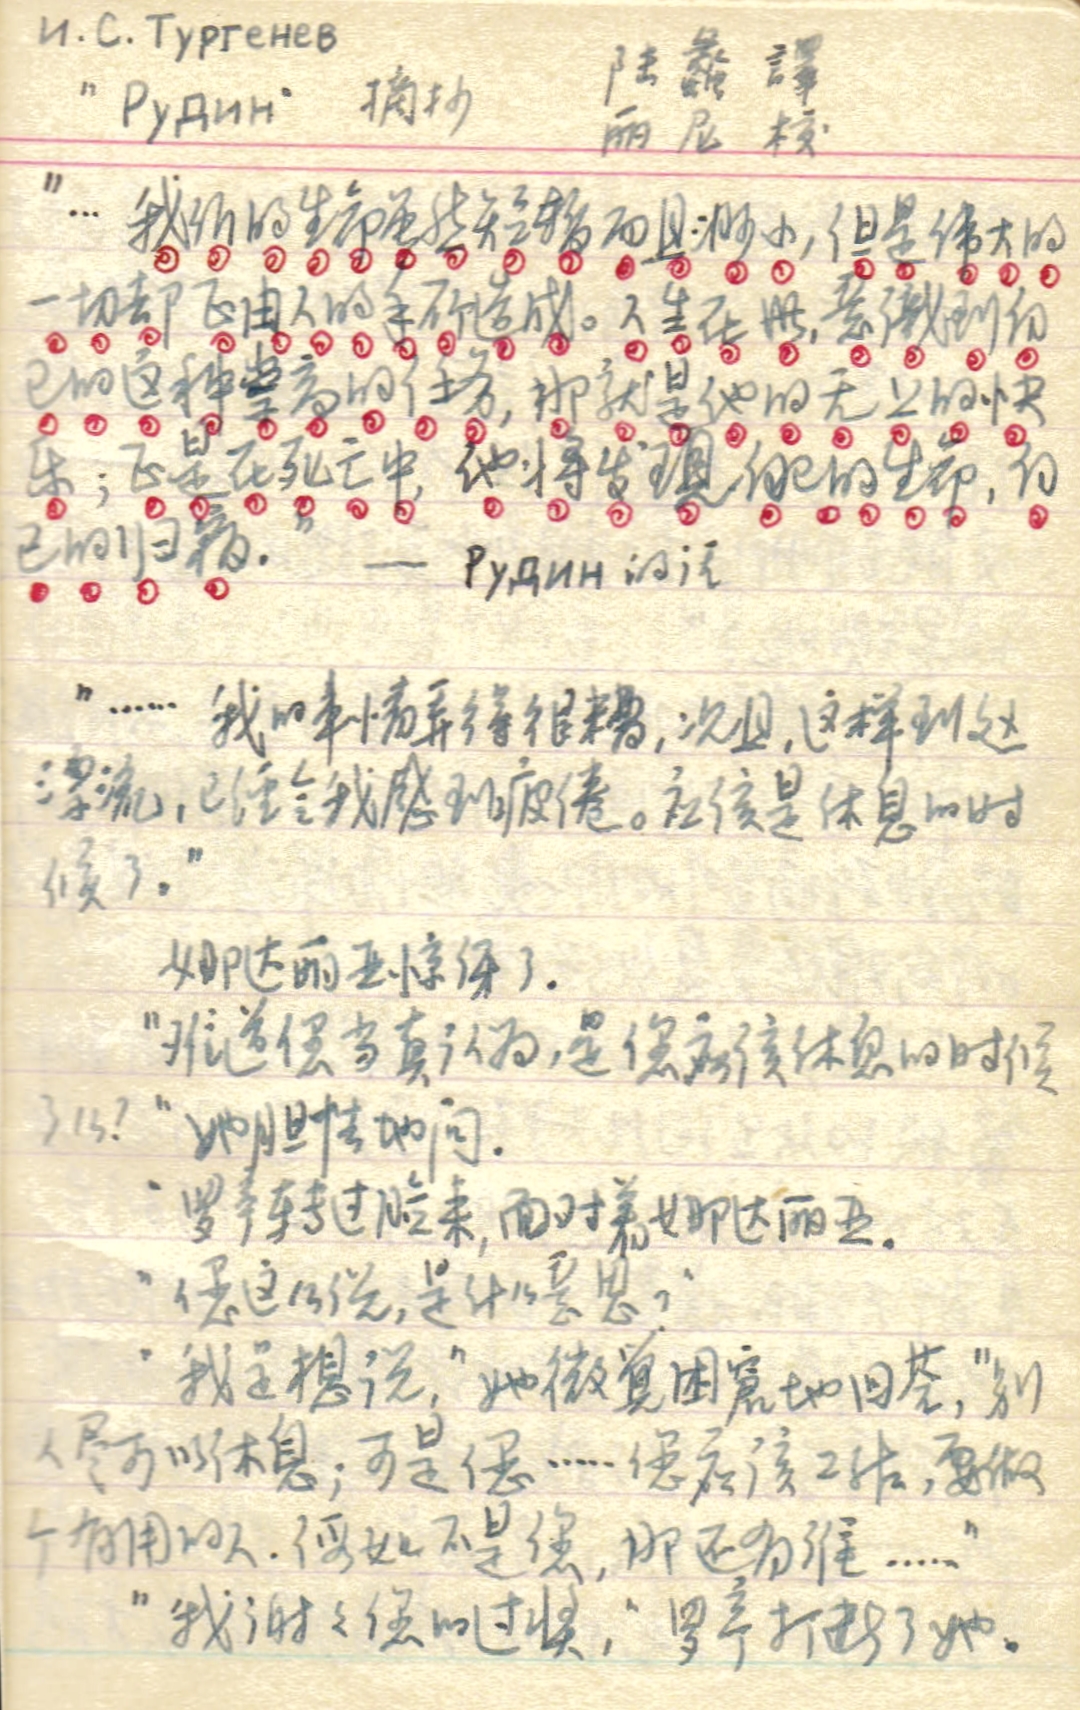 И.С.Тургенев
"Рудин" 摘抄
陆蠡 譯
丽尼 校
"… 我们的生命虽然短暂而且渺小,但是伟大的
一切却正由人的手所造成。人生在世,意識到自
己的这种崇高的任务,那就是他的无上的快
乐;正是在死亡中,他将发現自己的生命,自
己的归宿."
— Рудин 的话
"…… 我的事情弄得很糟,况且,这样到处
漂流,已经令我感到疲倦。应该是休息的时
候了."
娜达丽亚惊讶了.
"难道您当真认为,是您应该休息的时候
了么?"她胆怯地问.
罗亭转过脸来,面对着娜达丽亚.
"您这么说,是什么意思?"
"我是想说,"她微覚困窘地回答,"别
人尽可以休息;可是您……您应该工作,要做
个有用的人.倘如不是您,那还有谁……"
"我谢々您的过奖,"罗亭打断了她.